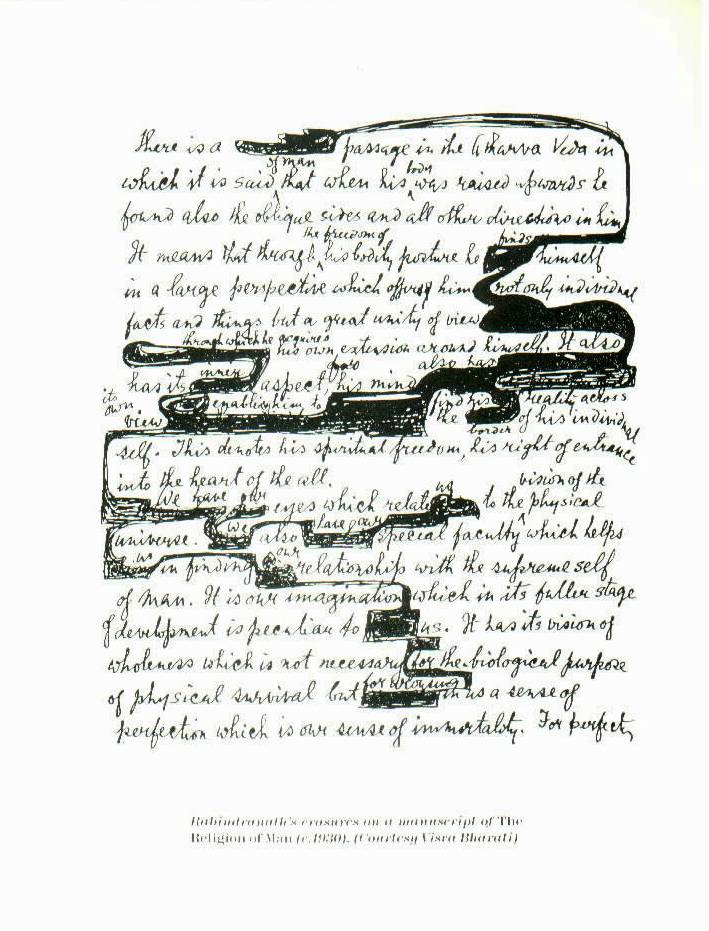 There is a passage in the Atharva Veda in
of man body
which it is said that when his was raised upwards he
found also the oblique sides and all other directions in him
the freedom of finds
It means that through his bodily posture he himself
in a large perspective which offers him not only individual
facts and things but a great unity of view
through which he acquires
his own extension around himself. It also
inner also has
has its aspect his mind
its own enabling him to find his reality across
view the border of his individual
self. This denotes his spiritual freedom, his right of entrance
into the heart of the all.
We have our us vision of the
eyes which relate to the physical
universe. we also have our special faculty which helps
us our
in finding relationship with the supreme self
of man. It is our imagination which in its fuller stage
of development is peculiar to us. It has its vision of
wholeness which is not necessary for the biological purpose
of physical survival but for arousing in us a sense of
perfection which is our sense of immortality. For perfect
Rabindranath's erasures on a manuscript of The
Religion of Man (c.1930). (Courtesy Visva Bharati)